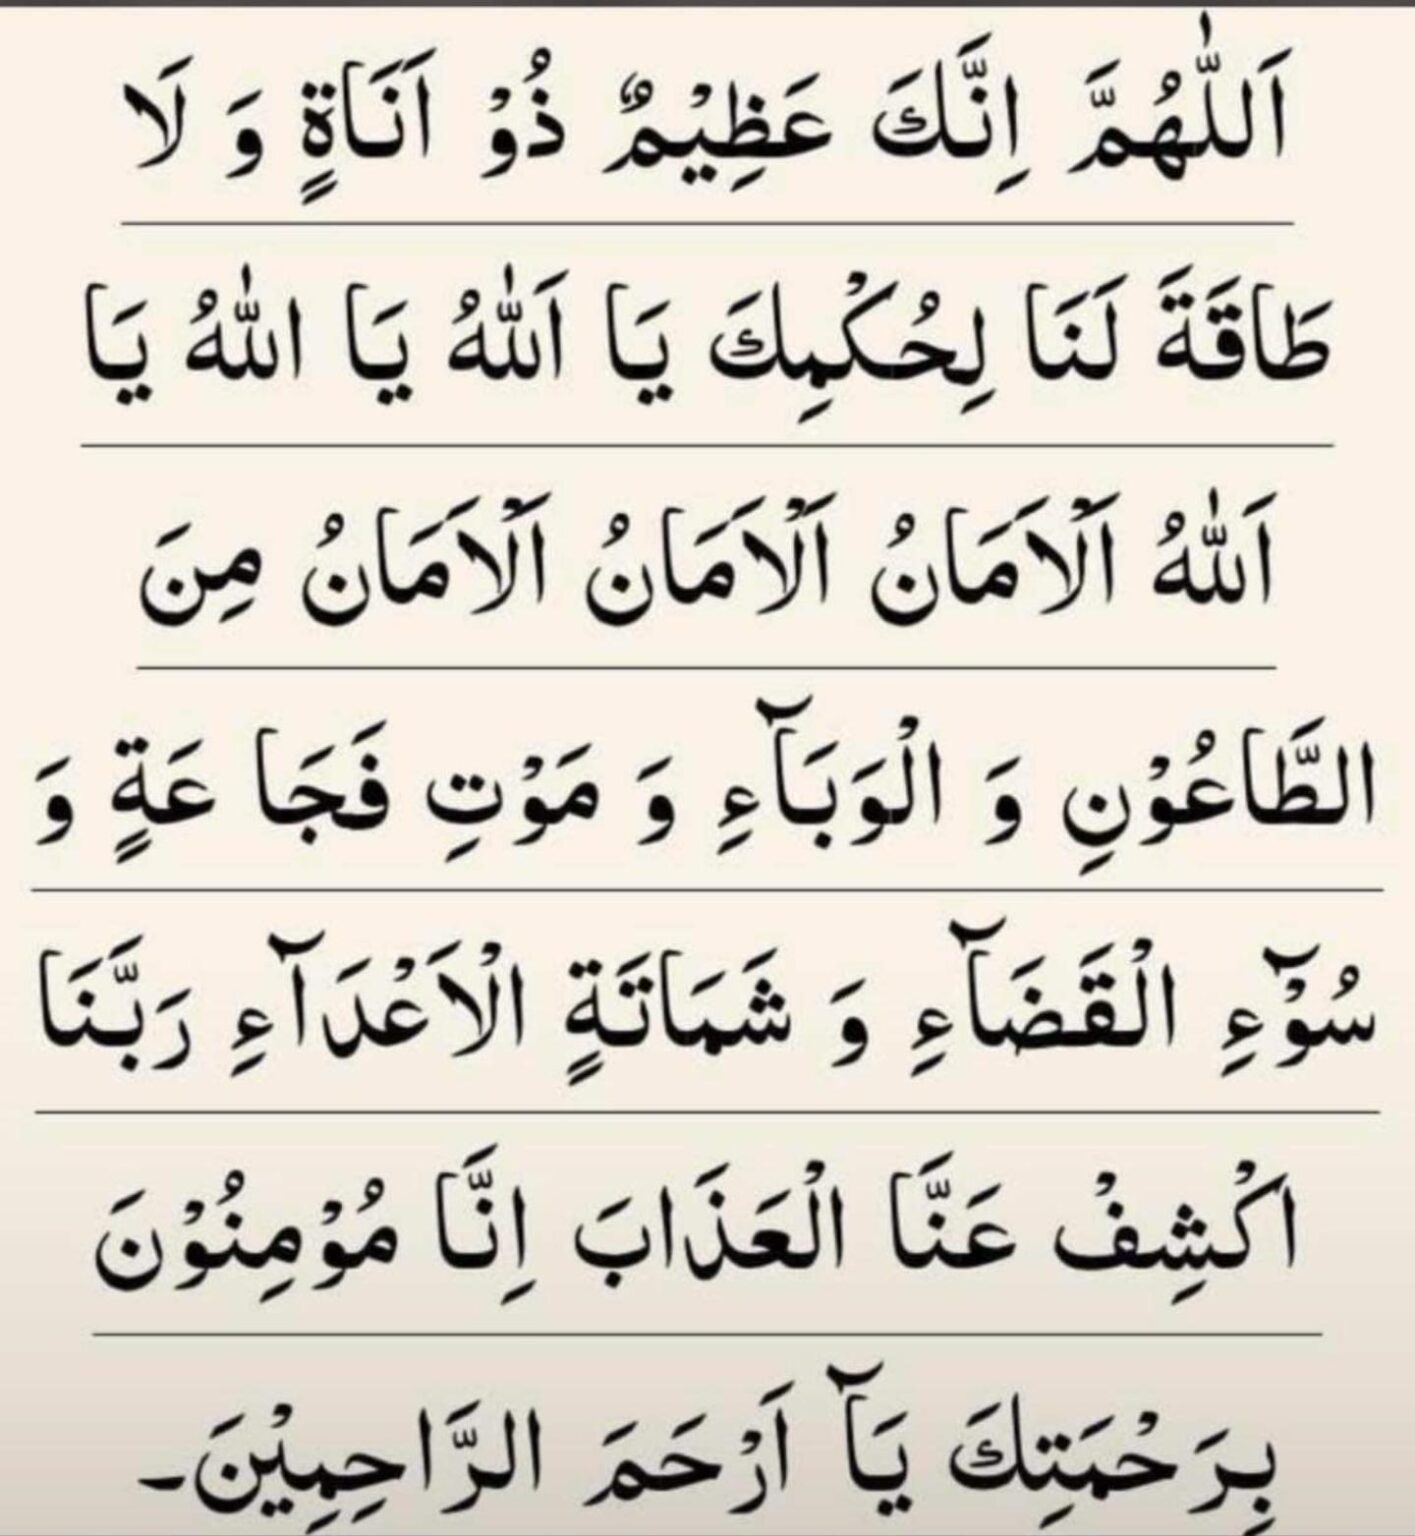 اَللّٰهُمَّ اِنَّكَ عَظِيْمٌ ذُوْ اَنَاةٍ وَ لَا
طَاقَةَ لَنَا لِحُكْمِكَ يَا اَللّٰهُ يَا اللّٰهُ يَا
اَللّٰهُ اَلْاَمَانُ اَلْاَمَانُ اَلْاَمَانُ مِنَ
الطَّاعُوْنِ وَ الْوَبَآءِ وَ مَوْتِ فَجَا عَةٍ وَ
سُوْٓءِ الْقَضَآءِ وَ شَمَاتَةٍ الْاَعْدَآءِ رَبَّنَا
اكْشِفْ عَنَّا الْعَذَابَ اِنَّا مُوْمِنُوْنَ
بِرَحْمَتِكَ يَآ اَرْحَمَ الرَّاحِمِيْنَ۔